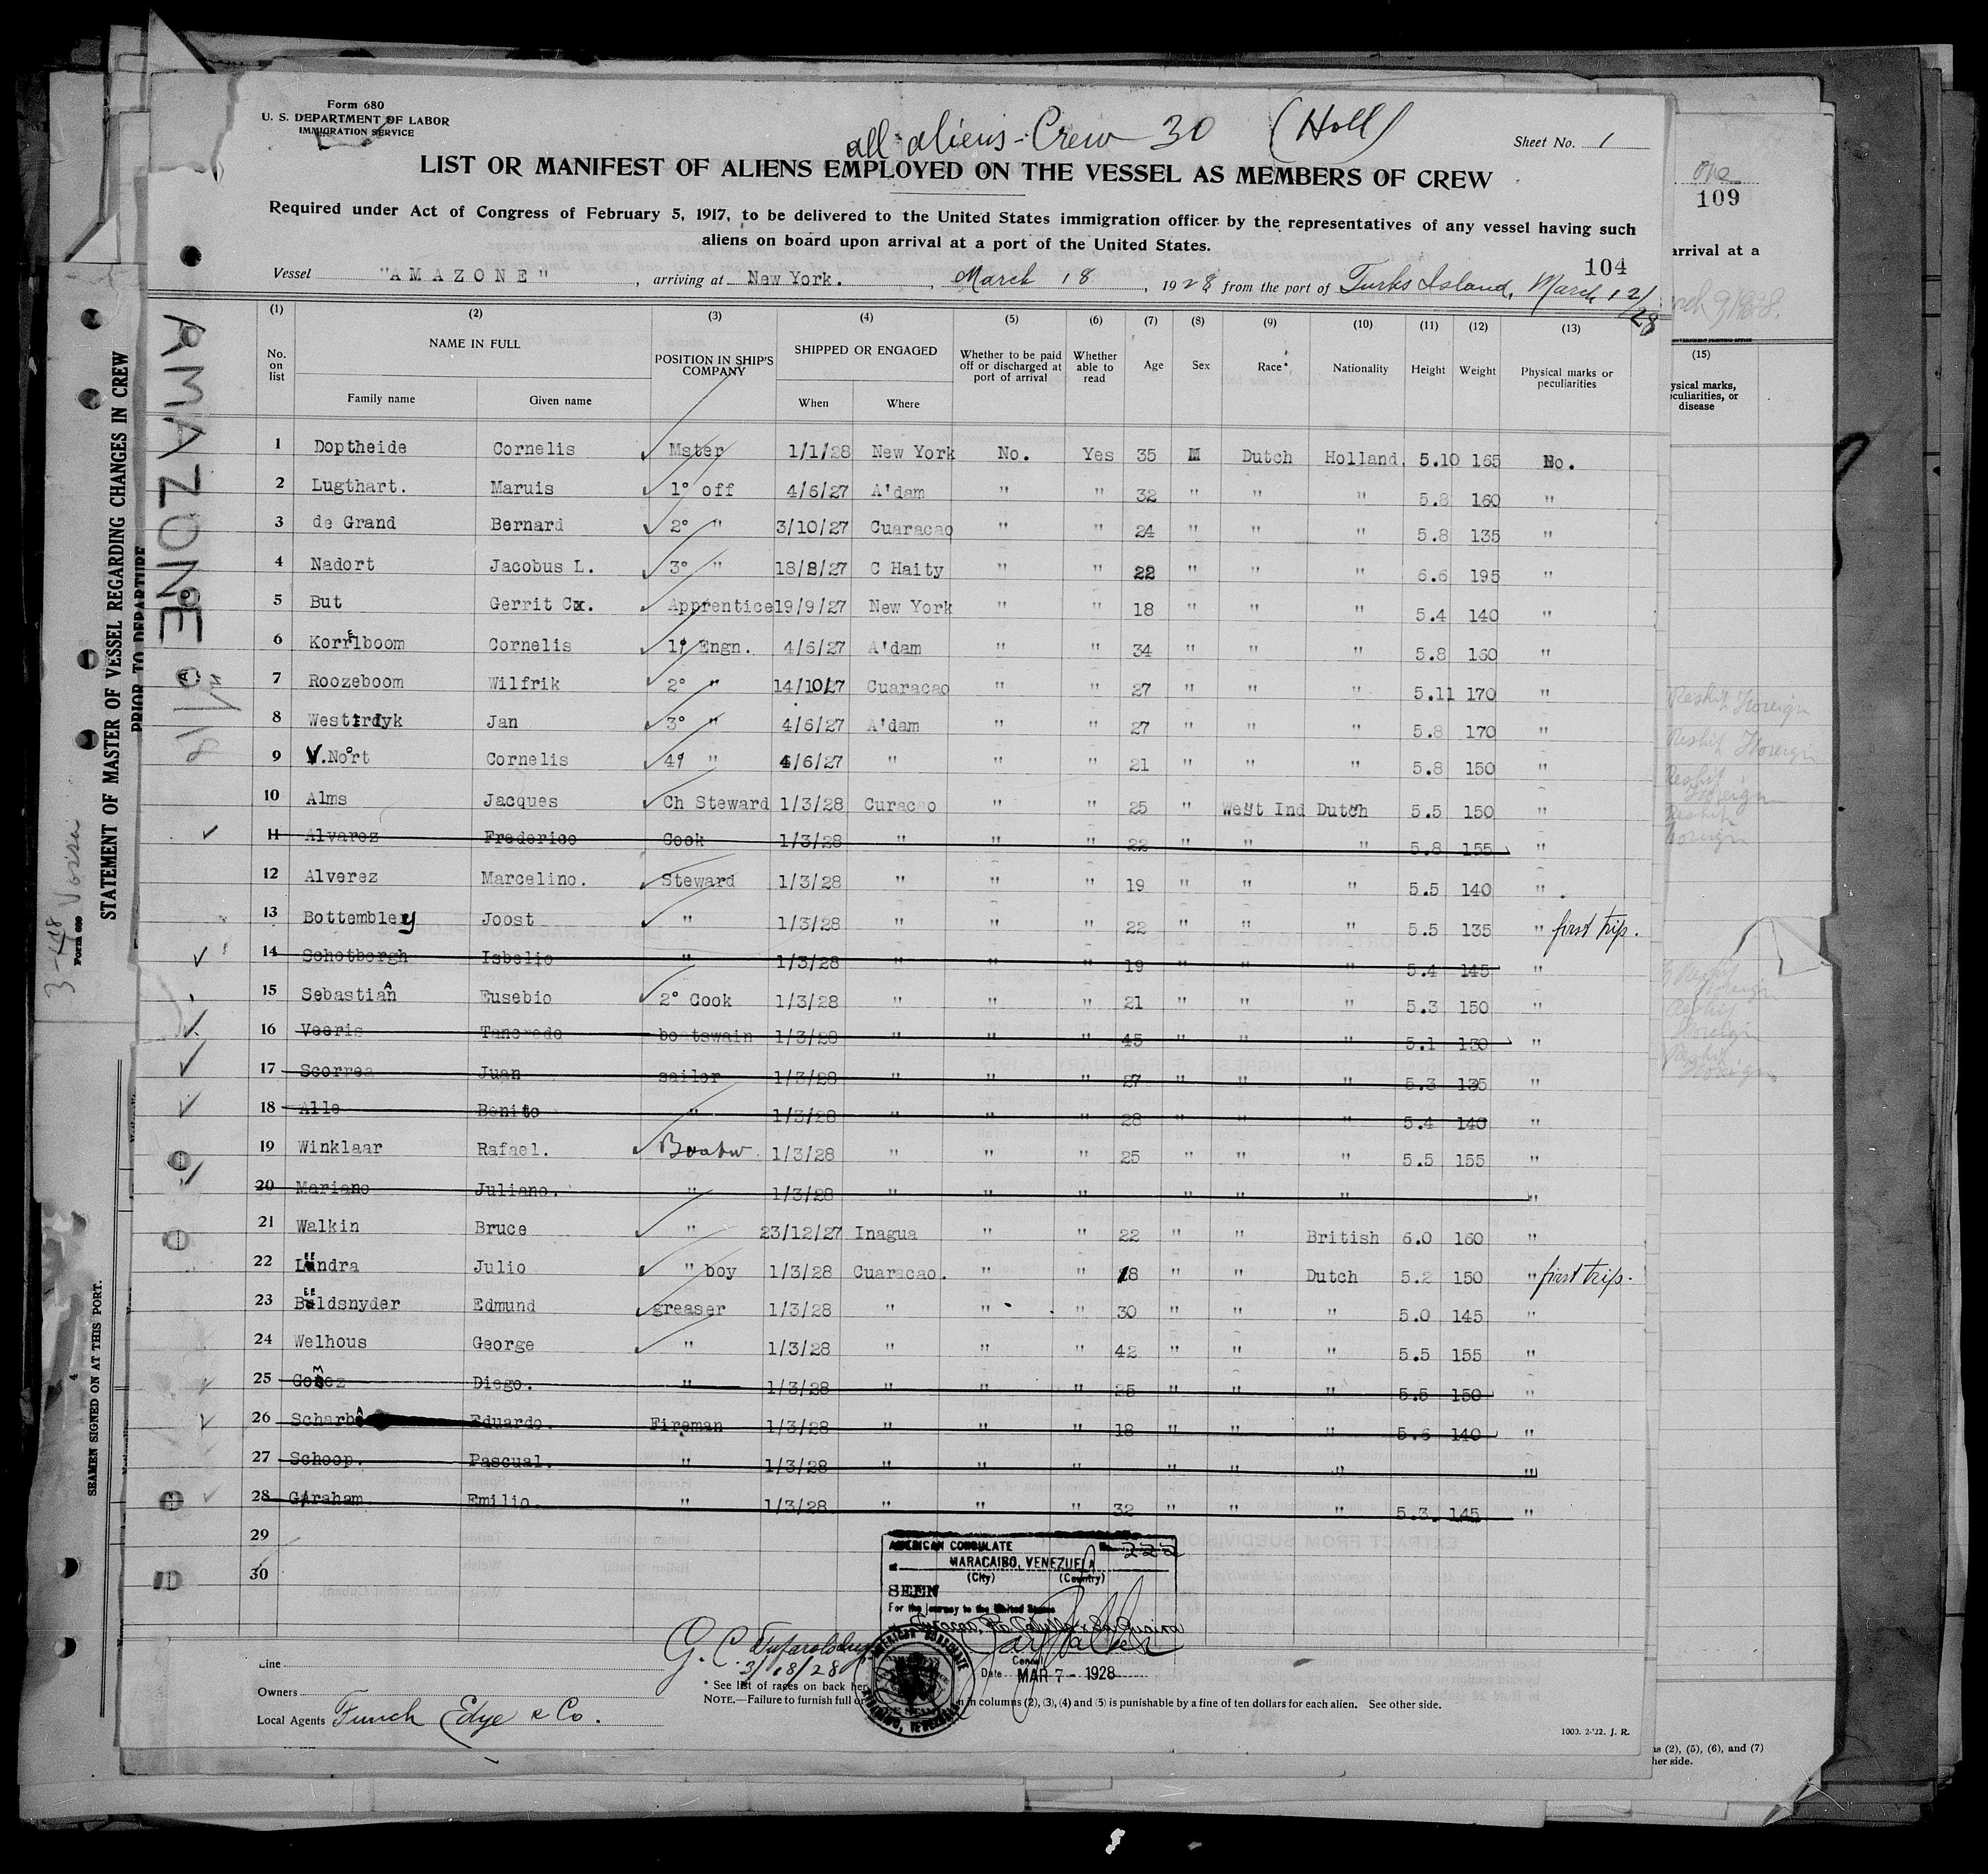 Form 680
U. S. DEPARTMENT OF LABOR
IMMIGRATION SERVICE
all aliens - Crew 30 (Holl)
Sheet No. 1
LIST OR MANIFEST OF ALIENS EMPLOYED ON THE VESSEL AS MEMBERS OF CREW
Required under Act of Congress of February 5, 1917, to be delivered to the United States immigration officer by the representatives of any vessel having such
aliens on board upon arrival at a port of the United States.
104
Vessel "AMAZONE", arriving at New York., March 18, 1928 from the port of Turks Island, March 12/28
(1) (2) (3) (4) (5) (6) (7) (8) (9) (10) (11) (12) (13)
No. on list NAME IN FULL Family name Given name POSITION IN SHIP'S COMPANY SHIPPED OR ENGAGED When Where Whether to be paid off or discharged at port of arrival Whether able to read Age Sex Race* Nationality Height Weight Physical marks or peculiarities
1 Doptheide Cornelis Mster 1/1/28 New York No. Yes 35 M Dutch Holland. 5.10 165 No.
2 Lugthart. Maruis 1° off 4/6/27 A'dam " " 32 " " " 5.8 160 "
3 de Grand Bernard 2° " 3/10/27 Cuaracao " " 24 " " " 5.8 135 "
4 Nadort Jacobus L. 3° " 18/8/27 C Haity " " 22 " " " 6.6 195 "
5 But Gerrit Cx. Apprentice 19/9/27 New York " " 18 " " " 5.4 140 "
6 Korrelboom Cornelis 1° Engn. 4/6/27 A'dam " " 34 " " " 5.8 160 "
7 Roozeboom Wilfrik 2° " 14/10/27 Cuaracao " " 27 " " " 5.11 170 "
8 Westerdyk Jan 3° " 4/6/27 A'dam " " 27 " " " 5.8 170 "
9 V. Nort Cornelis 4° " 4/6/27 " " " 21 " " " 5.8 150 "
10 Alms Jacques Ch Steward 1/3/28 Curacao " " 25 " West Ind Dutch 5.5 150 "
11 Alvarez Frederico Cook 1/3/28 " " " 22 " " " 5.8 155 "
12 Alverez Marcelino. Steward 1/3/28 " " " 19 " " " 5.5 140 "
13 Bottembley Joost " 1/3/28 " " " 22 " " " 5.5 135 " first trip.
14 Schotborgh Isbelio " 1/3/28 " " " 19 " " " 5.4 145 "
15 Sebastian Eusebio 2° Cook 1/3/28 " " " 21 " " " 5.3 150 "
16 Veeris Tancredo boatswain 1/3/28 " " " 45 " " " 5.1 130 "
17 Scorrea Juan sailor 1/3/28 " " " 27 " " " 5.3 135 "
18 Alle Benito " 1/3/28 " " " 28 " " " 5.4 140 "
19 Winklaar Rafael. Boatsw 1/3/28 " " " 25 " " " 5.5 155 "
20 Mariano Juliano. " 1/3/28 " " " " " " "
21 Walkin Bruce " 23/12/27 Inagua " " 22 " " British 6.0 160 "
22 Leendra Julio " boy 1/3/28 Cuaracao. " " 18 " " Dutch 5.2 150 " first trip.
23 Beeldsnyder Edmund greaser 1/3/28 " " " 30 " " " 5.0 145 "
24 Welhous George " 1/3/28 " " " 42 " " " 5.5 155 "
25 Gomez Diego. " 1/3/28 " " " 25 " " " 5.5 150 "
26 Scharba Eduardo. Fireman 1/3/28 " " " 18 " " " 5.6 140 "
27 Schoop. Pascual. " 1/3/28 " " " " " " "
28 Graham Emilio " 1/3/28 " " " 32 " " " 5.3. 145 "
29
30
AMERICAN CONSULATE No. 222
at MARACAIBO, VENEZUELA
(City) (Country)
SEEN
For the journey to the United States
Consul
Date MAR 7 - 1928
AMERICAN CONSULATE
MARACAIBO, VENEZUELA
3/18/28
Line
Owners
Local Agents Funch Edye & Co.
* See list of races on back her
NOTE.—Failure to furnish full or
n in columns (2), (3), (4) and (5) is punishable by a fine of ten dollars for each alien. See other side.
1000. 2-'22. J. R.
AMAZONE
STATEMENT OF MASTER OF VESSEL REGARDING CHANGES IN CREW
PRIOR TO DEPARTURE
Form 680
SEAMEN SIGNED ON AT THIS PORT.
one
109
arrival at a
(15)
ysical marks,
culiarities, or
disease
Reship Foreign
Reship Foreign
Reship
Foreign
Reship
Foreign
Reship
Foreign
Reship
Foreign
Reship
Foreign
ns (2), (5), (6), and (7)
her side.